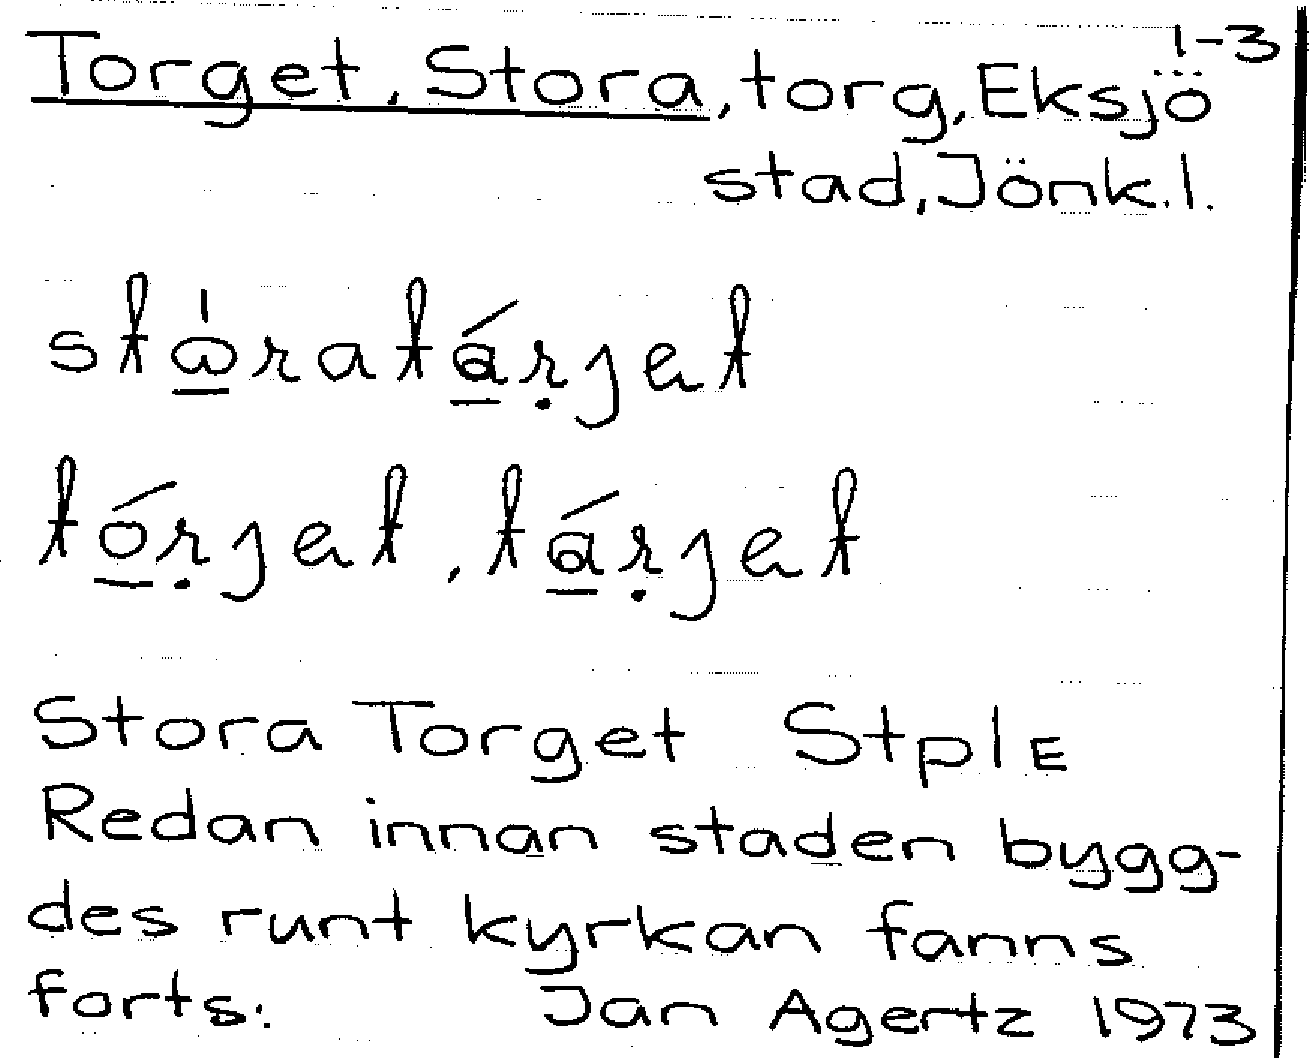 1-3
Torget, Stora, torg, Eksjö
stad, Jönk.l.
stɷ̀ratárjet
tórjet, tárjet
Stora Torget StplE
Redan innan staden bygg-
des runt kyrkan fanns
forts: Jan Agertz 1973